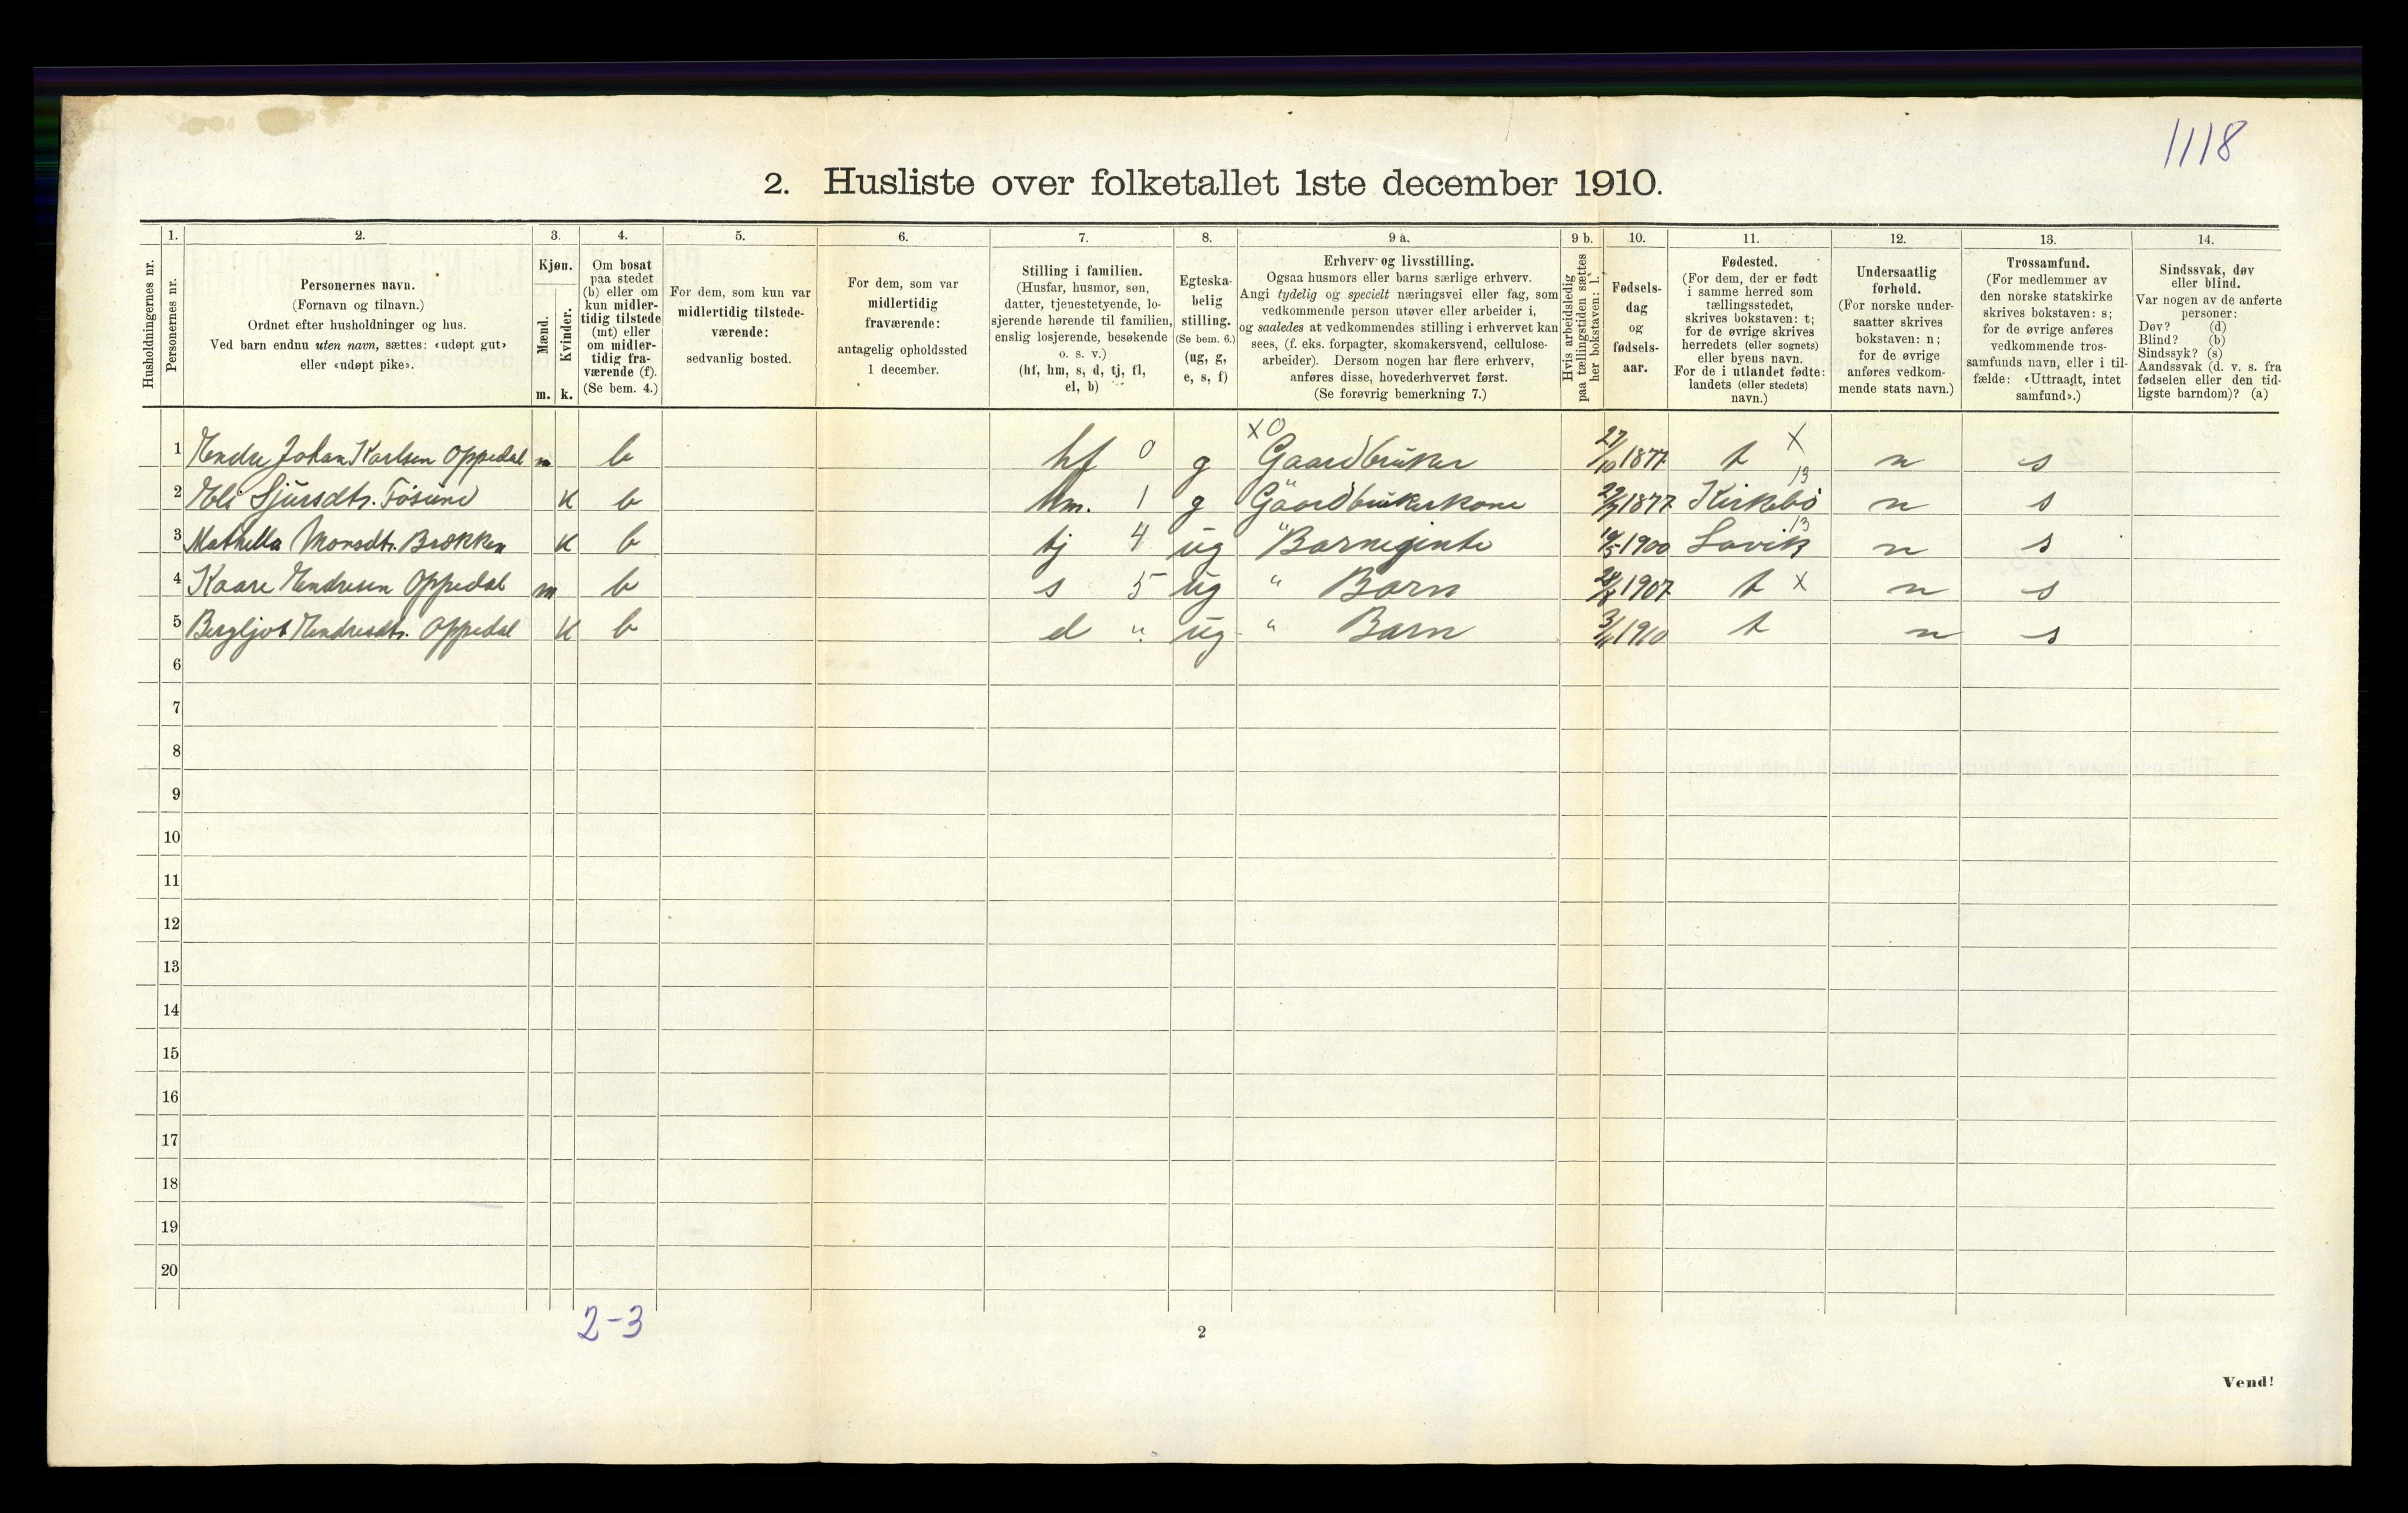 1118
2. Husliste over folketallet 1ste december 1910.
Husholdningernes nr.
1. Personernes nr.
2. Personernes navn.
(Fornavn og tilnavn.)
Ordnet efter husholdninger og hus.
Ved barn endnu uten navn, sættes: «udøpt gut»
eller «udøpt pike».
3. Kjøn.
Mænd. m.
Kvinder. k.
4. Om bosat
paa stedet
(b) eller om
kun midler-
tidig tilstede
(mt) eller
om midler-
tidig fra-
værende (f).
(Se bem. 4.)
5. For dem, som kun var
midlertidig tilstede-
værende:
sedvanlig bosted.
6. For dem, som var
midlertidig
fraværende:
antagelig opholdssted
1 december.
7. Stilling i familien.
(Husfar, husmor, søn,
datter, tjenestetyende, lo-
sjerende hørende til familien,
enslig losjerende, besøkende
o. s. v.)
(hf, hm, s, d, tj, fl,
el, b)
8. Egteska-
belig
stilling.
(Se bem. 6.)
(ug, g,
e, s, f)
9 a. Erhverv og livsstilling.
Ogsaa husmors eller barns særlige erhverv.
Angi tydelig og specielt næringsvei eller fag, som
vedkommende person utøver eller arbeider i,
og saaledes at vedkommendes stilling i erhvervet kan
sees, (f. eks. forpagter, skomakersvend, cellulose-
arbeider). Dersom nogen har flere erhverv,
anføres disse, hovederhvervet først.
(Se forøvrig bemerkning 7.)
9 b. Hvis arbeidsledig
paa tællingstiden sættes
her bokstaven: l.
10. Fødsels-
dag
og
fødsels-
aar.
11. Fødested.
(For dem, der er født
i samme herred som
tællingsstedet,
skrives bokstaven: t;
for de øvrige skrives
herredets (eller sognets)
eller byens navn.
For de i utlandet fødte:
landets (eller stedets)
navn.)
12. Undersaatlig
forhold.
(For norske under-
saatter skrives
bokstaven: n;
for de øvrige
anføres vedkom-
mende stats navn.)
13. Trossamfund.
(For medlemmer av
den norske statskirke
skrives bokstaven: s;
for de øvrige anføres
vedkommende tros-
samfunds navn, eller i til-
fælde: «Uttraadt, intet
samfund».)
14. Sindssvak, døv
eller blind.
Var nogen av de anførte
personer:
Døv? (d)
Blind? (b)
Sindssyk? (s)
Aandssvak (d. v. s. fra
fødselen eller den tid-
ligste barndom)? (a)
1 Endre Johan Karlsen Oppedal m b hf 0 g XO Gaardbruker 27/10 1877 t X n s
2 Eli Sjursdtr. k b hm. 1 g Gaardbrukerkone 1877 Kirkebø 13 n s
3 Mathella Monsdtr. Brekken k b tj 4 ug " Barnegjente 1900 Lavik 13 n s
4 Kaare Endresen Oppedal m b s 5 ug " Barn 1907 t X n s
5 Bergljot Endresdtr. Oppedal k b d " ug " Barn 3/11 1910 t n s
6
7
8
9
10
11
12
13
14
15
16
17
18
19
20
2-3
2
Vend!